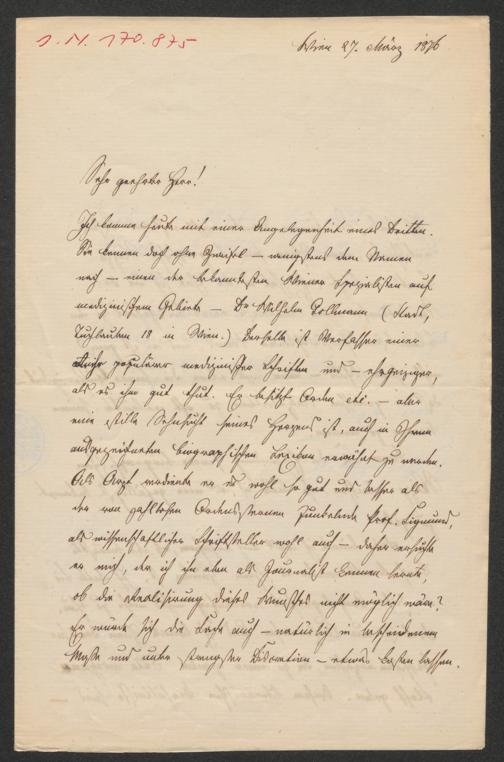 I. N. 170.875
Wien 27. März 1876
Sehr geehrter Herr!
Ich komme heute mit einer Angelegenheit eines Dritten.
Sie kennen doch ohne Zweifel – wenigstens dem Namen
nach – einen der bekanntesten Wiener Spezialisten auf
medizinischem Gebiete – Dr Wilhelm Gollmann (Stadt,
Tuchlauben 18 in Wien.) Derselbe ist Verfasser einer
populärer medizinischer Schriften und – ehrgeiziger,
als es ihm gut thut. Er besitzt Orden etc. – aber
eine stille Sehnsucht seines Herzens ist, auch in Ihrem
ausgezeichneten biographischen Lexikon erwähnt zu werden.
Als Arzt verdiente er es wohl so gut und besser als
der von zahllosen Ordenssternen funkelnde Prof. Sigmund,
als wissenschaftlicher Schriftsteller wohl auch – daher ersuchte
er mich, der ich ihn eben als Journalist kennen lernte,
ob die Realisirung dieses Wunsches nicht möglich wäre?
Er würde sich die Sache auch – natürlich in bescheidenem
Maße und unter strengster Discretion – etwas kosten lassen.